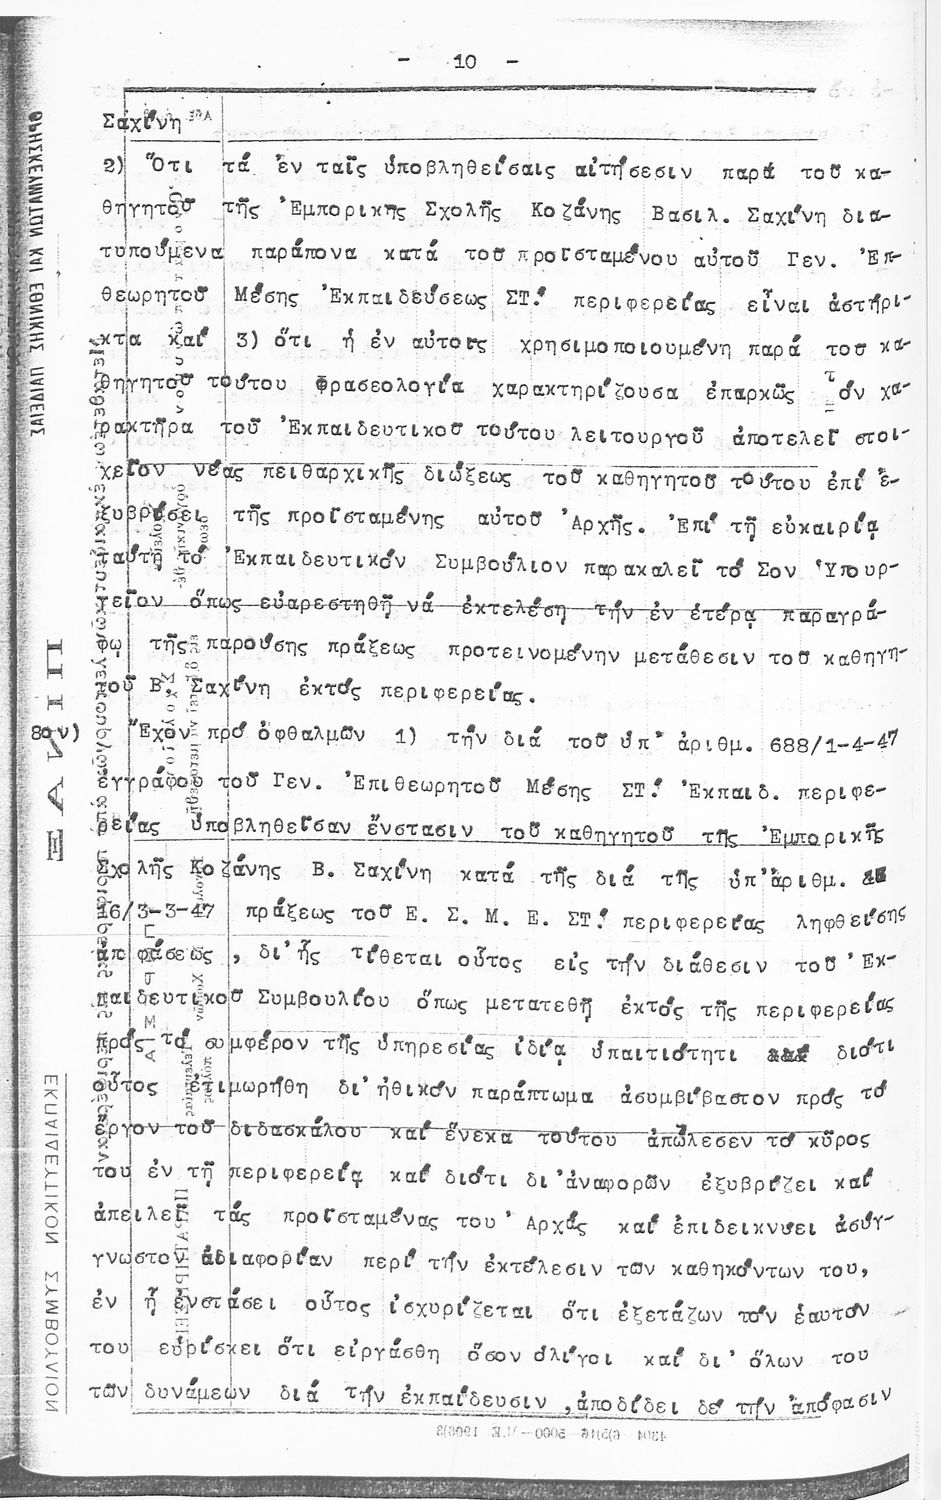 - 10 -
Σαχίνη
2) Ὅτι τά ἐν ταῖς ὑποβληθείσαις αἰτήσεσιν παρά τοῦ κα-
θηγητοῦ τῆς Ἐμπορικῆς Σχολῆς Κοζάνης Βασιλ. Σαχίνη δια-
τυπούμενα παράπονα κατά τοῦ προϊσταμένου αὐτοῦ Γεν. Ἐπ-
θεωρητοῦ Μέσης Ἐκπαιδεύσεως ΣΤ.' περιφερείας εἶναι ἀστήρι-
κτα καί 3) ὅτι ἡ ἐν αὐτοῖς χρησιμοποιουμένη παρά τοῦ κα-
θηγητοῦ τούτου φρασεολογία χαρακτηρίζουσα ἐπαρκῶς τόν χα-
ρακτῆρα τοῦ Ἐκπαιδευτικοῦ τούτου λειτουργοῦ ἀποτελεῖ στοι-
χεῖον νέας πειθαρχικῆς διώξεως τοῦ καθηγητοῦ τούτου ἐπί ἐ-
ξυβρίσει τῆς προϊσταμένης αὐτοῦ Ἀρχῆς. Ἐπί τῇ εὐκαιρίᾳ
ταύτῃ τό Ἐκπαιδευτικόν Συμβούλιον παρακαλεῖ τό Σον Ὑπουρ-
γεῖον ὅπως εὐαρεστηθῇ νά ἐκτελέσῃ τήν ἐν ἑτέρᾳ παραγρά-
φῳ τῆς παρούσης πράξεως προτεινομένην μετάθεσιν τοῦ καθηγη-
τοῦ Β. Σαχίνη ἐκτός περιφερείας.
8ον) Ἔχον πρό ὀφθαλμῶν 1) τήν διά τοῦ ὑπ' ἀριθμ. 688/1-4-47
ἐγγράφου τοῦ Γεν. Ἐπιθεωρητοῦ Μέσης ΣΤ.' Ἐκπαιδ. περιφε-
ρείας ὑποβληθεῖσαν ἔνστασιν τοῦ καθηγητοῦ τῆς Ἐμπορικῆς
Σχολῆς Κοζάνης Β. Σαχίνη κατά τῆς διά τῆς ὑπ' ἀριθμ.
16/3-3-47 πράξεως τοῦ Ε. Σ. Μ. Ε. ΣΤ.' περιφερείας ληφθείσης
ἀποφάσεως , δι' ἧς τίθεται οὗτος εἰς τήν διάθεσιν τοῦ Ἐκ-
παιδευτικοῦ Συμβουλίου ὅπως μετατεθῇ ἐκτός τῆς περιφερείας
πρός τό συμφέρον τῆς ὑπηρεσίας ἰδίᾳ ὑπαιτιότητι διότι
οὗτος ἐτιμωρήθη δι' ἠθικόν παράπτωμα ἀσυμβίβαστον πρός τό
ἔργον τοῦ διδασκάλου καί ἕνεκα τούτου ἀπώλεσεν τό κῦρος
του ἐν τῇ περιφερείᾳ καί διότι δι' ἀναφορῶν ἐξυβρίζει καί
ἀπειλεῖ τάς προϊσταμένας του Ἀρχάς καί ἐπιδεικνύει ἀσύγ-
γνωστον ἀδιαφορίαν περί τήν ἐκτέλεσιν τῶν καθηκόντων του,
ἐν ᾗ ἐνστάσει οὗτος ἰσχυρίζεται ὅτι ἐξετάζων τόν ἑαυτόν
του εὑρίσκει ὅτι εἰργάσθη ὅσον ὀλίγοι καί δι' ὅλων του
τῶν δυνάμεων διά τήν ἐκπαίδευσιν ,ἀποδίδει δέ τήν ἀπόφασιν
ΘΡΗΣΚΕΥΜΑΤΩΝ ΚΑΙ ΕΘΝΙΚΗΣ ΠΑΙΔΕΙΑΣ
ΕΚΠΑΙΔΕΥΤΙΚΟΝ ΣΥΜΒΟΥΛΙΟΝ